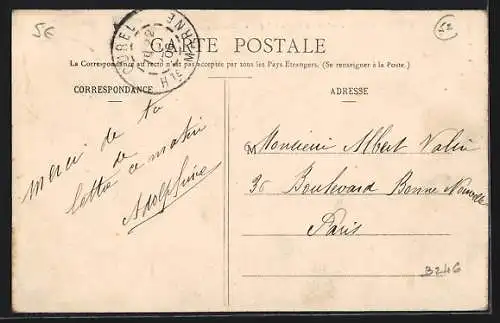 5€
CARTE POSTALE
La Correspondance au recto n'est pas acceptée par tous les Pays Etrangers. (Se renseigner à la Poste.)
CUREL
Hte MARNE
CORRESPONDANCE
Merci de ta
lettre de
ce matin
Adolphine
ADRESSE
M Monsieur Albert Valin
36 Boulevard Bonne Nouvelle
Paris
B246